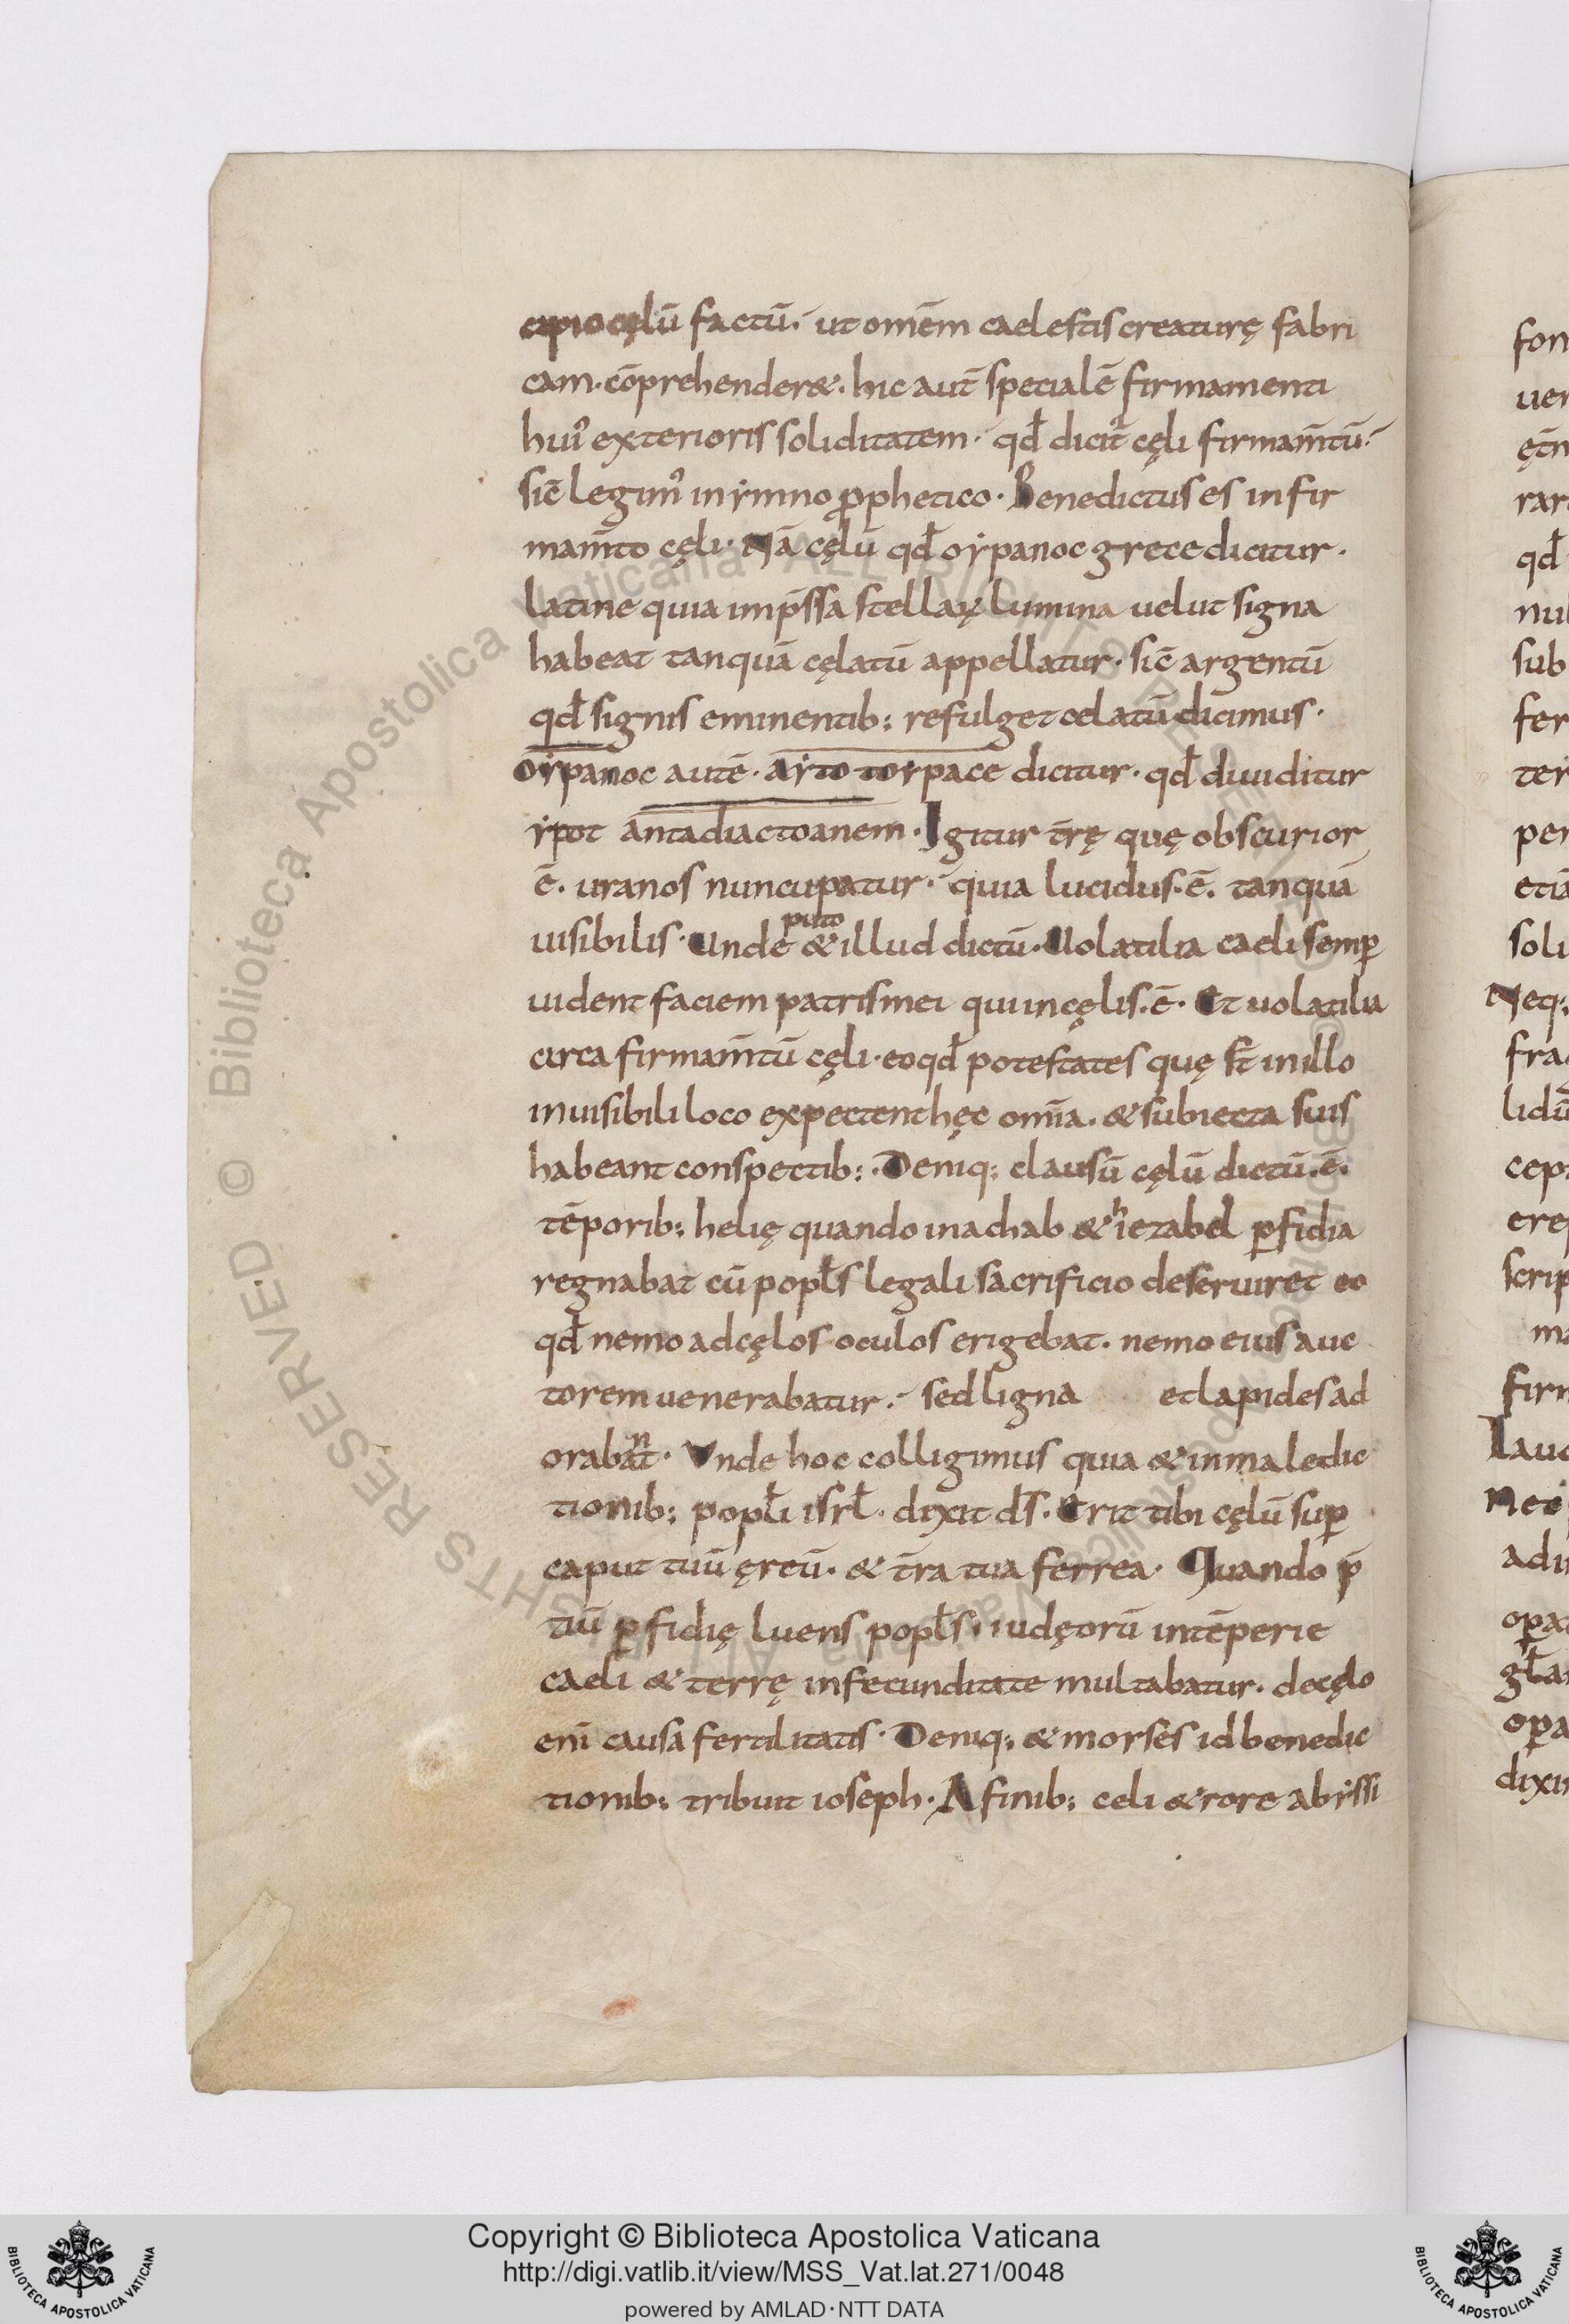 cipio cęlū factū. ut omēm caelestis creaturę fabri
cam. cōprehender&. hic aut̄ specialē firmamenti
hui᾽ exterioris soliditatem. qd̄ dicit᾽ cęli firmam̄tū.
sic̄ legim᾽ in ẏmno ꝓphetico. Benedictus es in fir
mam̄to cęli. Nā cęlū qd̄ oẏpanoc grece dicitur.
latine quia imp̄ssa stellaꝝ lumina uelut signa
habeat tanquā cęlatū appellatur. sic̄ argentū
qd̄ signis eminentib; refulget celatū dicimus.
oẏpanoc autē. aẏto toẏpace dicitur. qd̄ diuiditur
ẏpot antadiactoanem. Igitur t̄rę quę obscurior
ē. uranos nuncupatur. quia lucidus. ē. tanquā
uisibilis. Unde puto & illud dictū. Uolatilia caeli semꝑ
uident faciem patris mei qui in cęlis. ē. Et uolatilia
circa firmam̄tū cęli. eo qd̄ potestates quę s̄t in illo
inuisibili loco expectent hęc om̄ia. & subiecta suis
habeant conspectib;. Deniq; clausū cęlū dictū. ē.
tēporib; helię quando in achab & hiezabel ꝑfidia
regnabat cū popl̄s legali sacrificio deseruiret eo
qd̄ nemo ad cęlos oculos erigebat. nemo eius auc
torem uenerabatur. sed ligna et lapides ad
orabant. Vnde hoc colligimus quia & in maledic
tionib; popl̄i isrl̄. dixit d̄s. Erit tibi cęlū suꝑ
caput tuū ęreū. & t̄ra tua ferrea. Quando p̄
tiū ꝑfidię luens popl̄s. iudęorū intēperie
caeli & terrę infecunditate multabatur. de cęlo
eni᾽ causa fertilitatis. Deniq; & morses id benedic
tionib; tribuit ioseph. A finib; celi & rore abẏssi
fon
uer
ęt̄n
rar
qd̄
nul
sub
fer
ter
per
etiā
soli
Neq;
fra
lidū
cep
ere
scrip
ma
firm
Lau
Nec
adi
oꝑat
gl̄a
oꝑa
dixi
Biblioteca Apostolica Vaticana ALL RIGHTS RESERVED ©
Copyright © Biblioteca Apostolica Vaticana
http://digi.vatlib.it/view/MSS_Vat.lat.271/0048
powered by AMLAD·NTT DATA
BIBLIOTECA APOSTOLICA VATICANA
BIBLIOTECA APOSTOLICA VATICANA